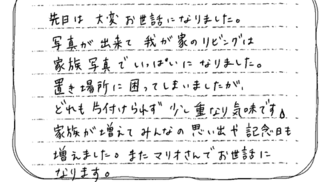 先日は大変お世話になりました。
写真が出来て我が家のリビングは
家族写真でいっぱいになりました。
置き場所に困ってしまいましたが、
どれも片付けられず少し重なり気味です。
家族が増えてみんなの思い出や記念日も
増えました。またマリオさんでお世話に
なります。